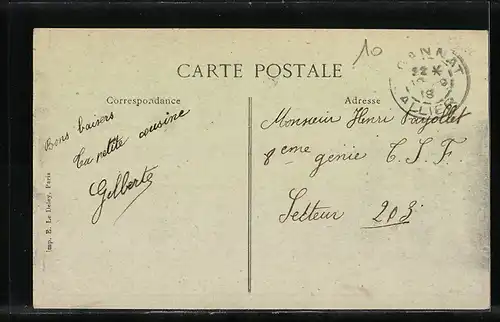 10
GANNAT
22 *
18
ALLIER
CARTE POSTALE
Correspondance
Adresse
Bons baisers
Ta petite cousine
Gilberte
Monsieur Henri Fayollet
8eme génie T.S.F
Secteur 203
Imp. E. Le Deley, Paris